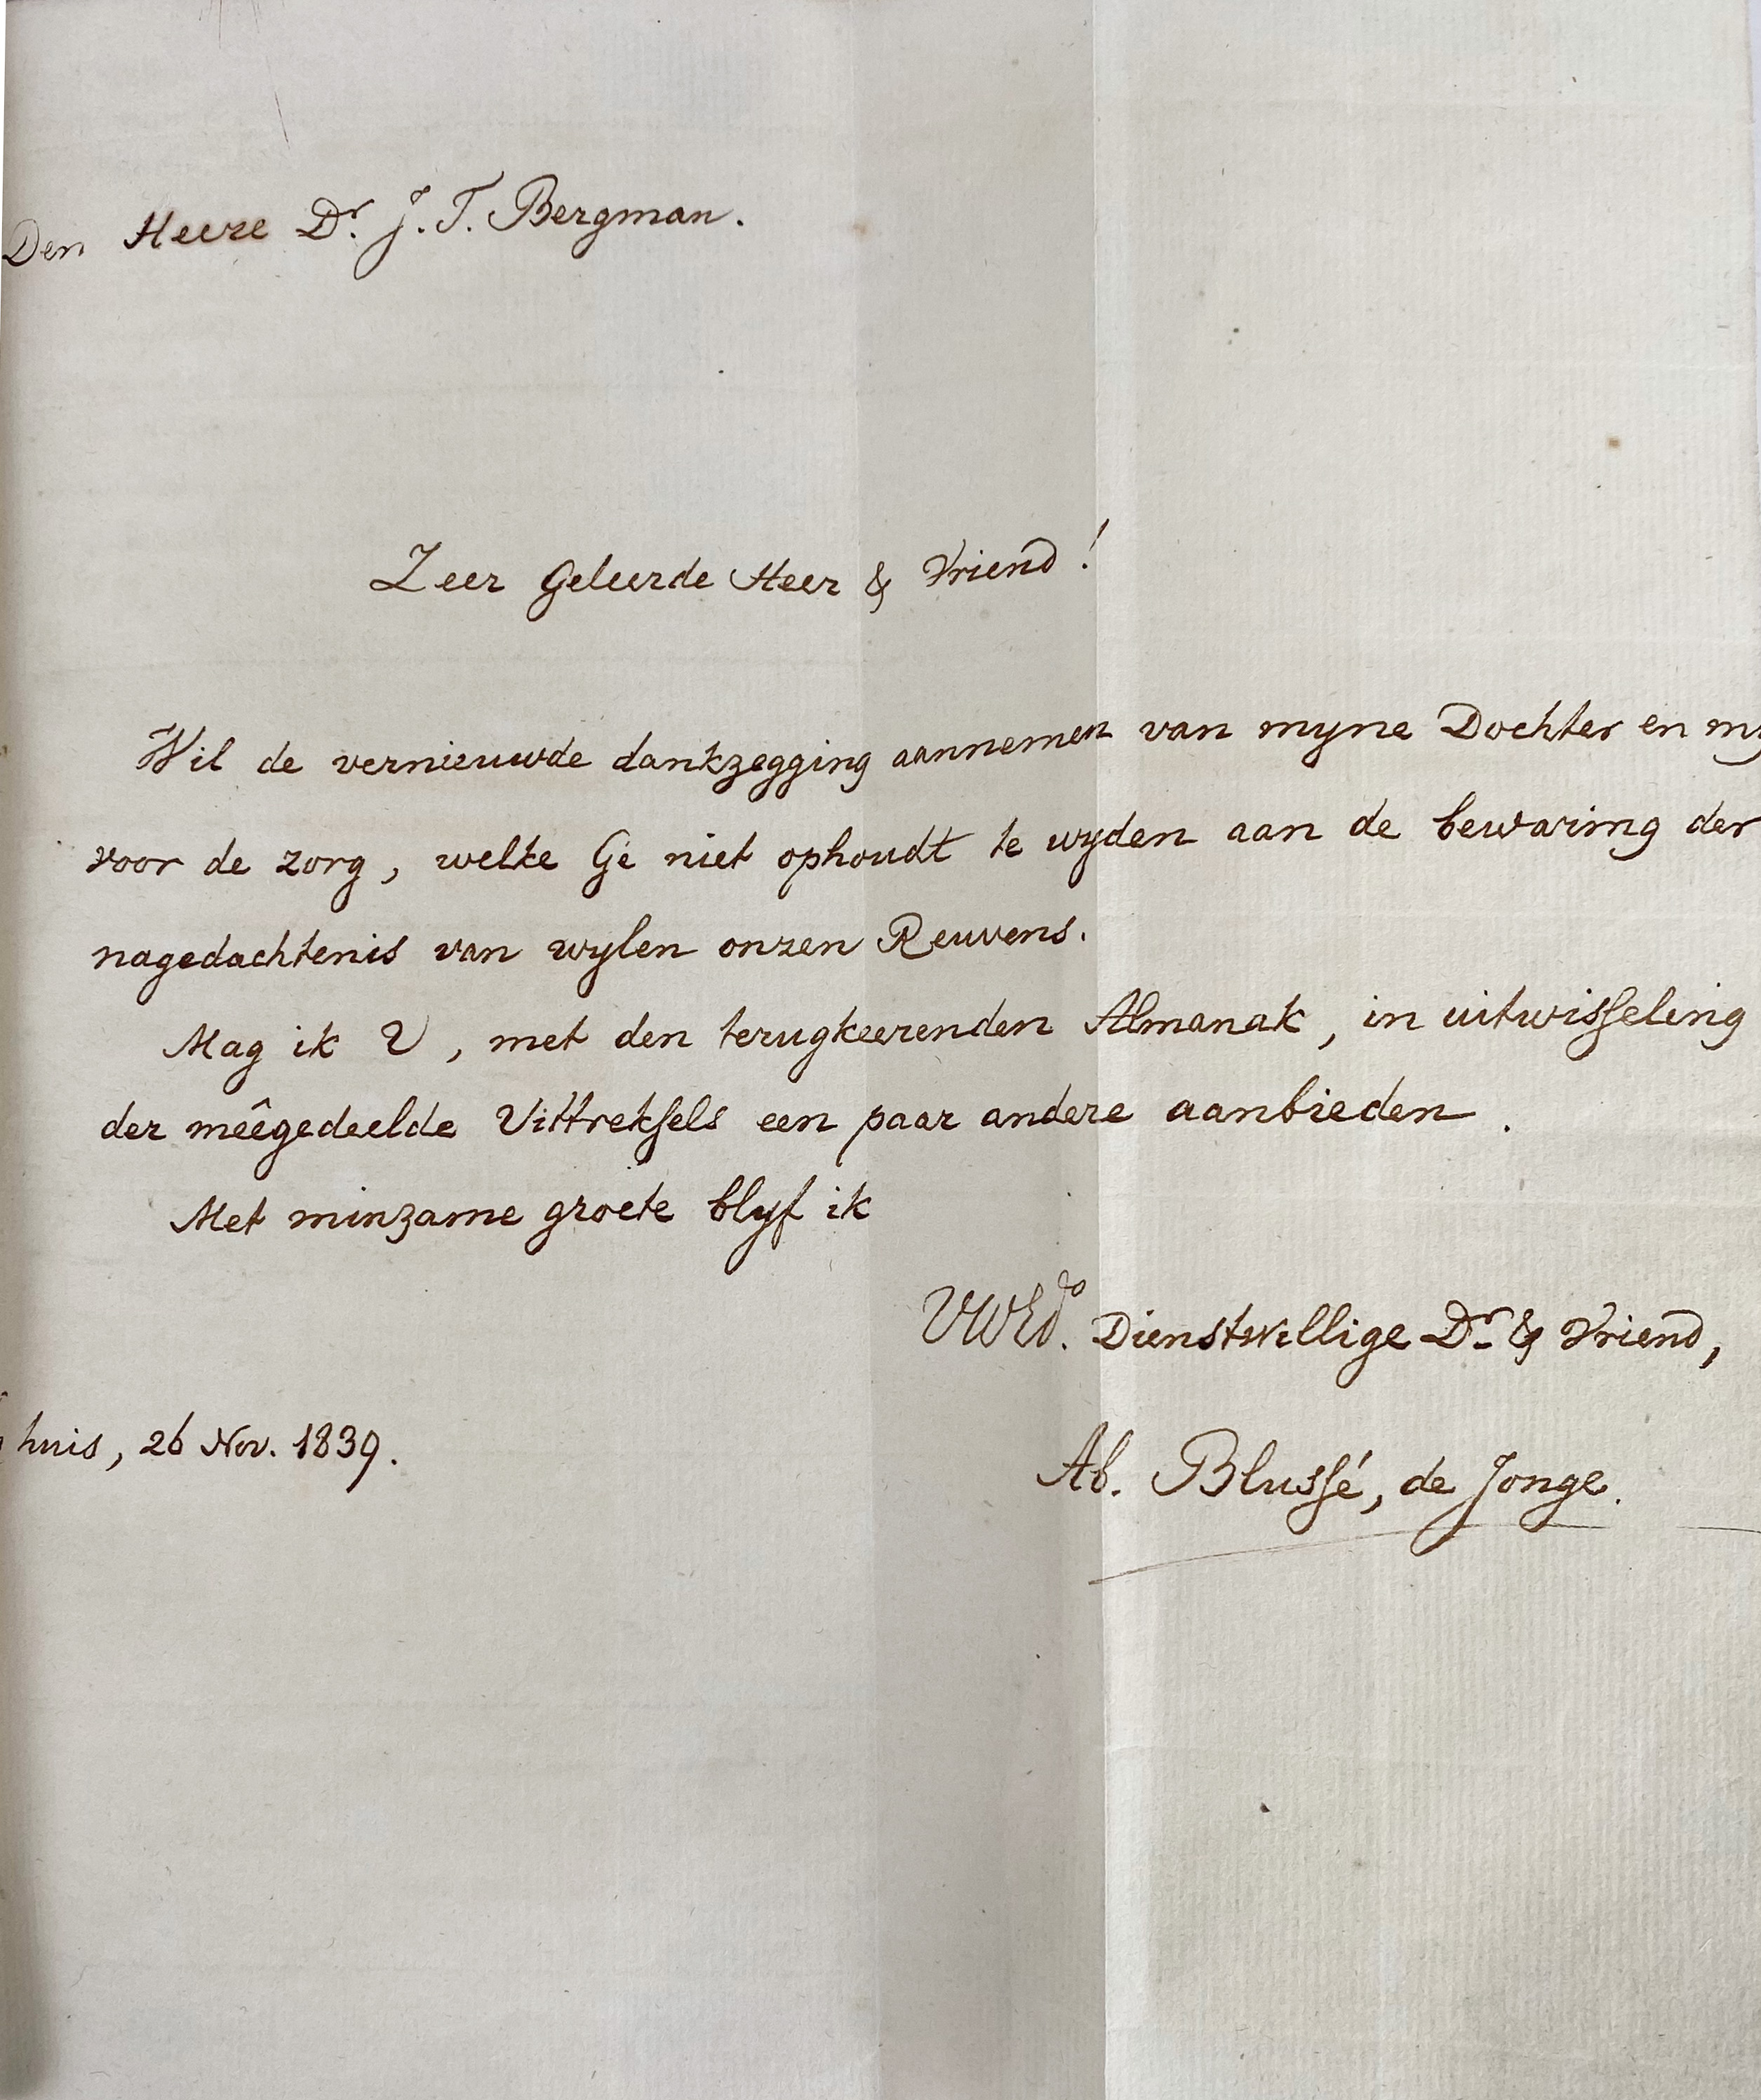 Den Heere Dr. J. T. Bergman.
Zeer Geleerde Heer & Vriend!
Wil de vernieuwde dankzegging aannemen van myne Dochter en my
voor de zorg, welke Ge niet ophoudt te wyden aan de bewaring der
nagedachtenis van wylen onzen Reuvens.
Mag ik U, met den terugkeerenden Almanak, in uitwisseling
der meêgedeelde Uittreksels een paar andere aanbieden.
Met minzame groete blyf ik
UWEdo. Dienstwillige Dr. & Vriend,
huis, 26 Nov. 1839.
Ab. Blussé, de Jonge.